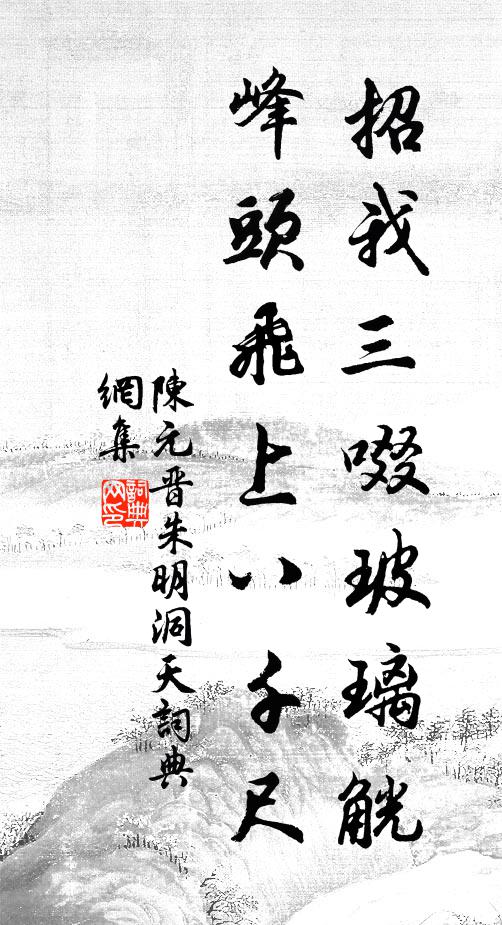 招我三啜玻璃觥
峰頭飛上八千尺
陳元晋朱明洞天詞典
網集
詞典网印